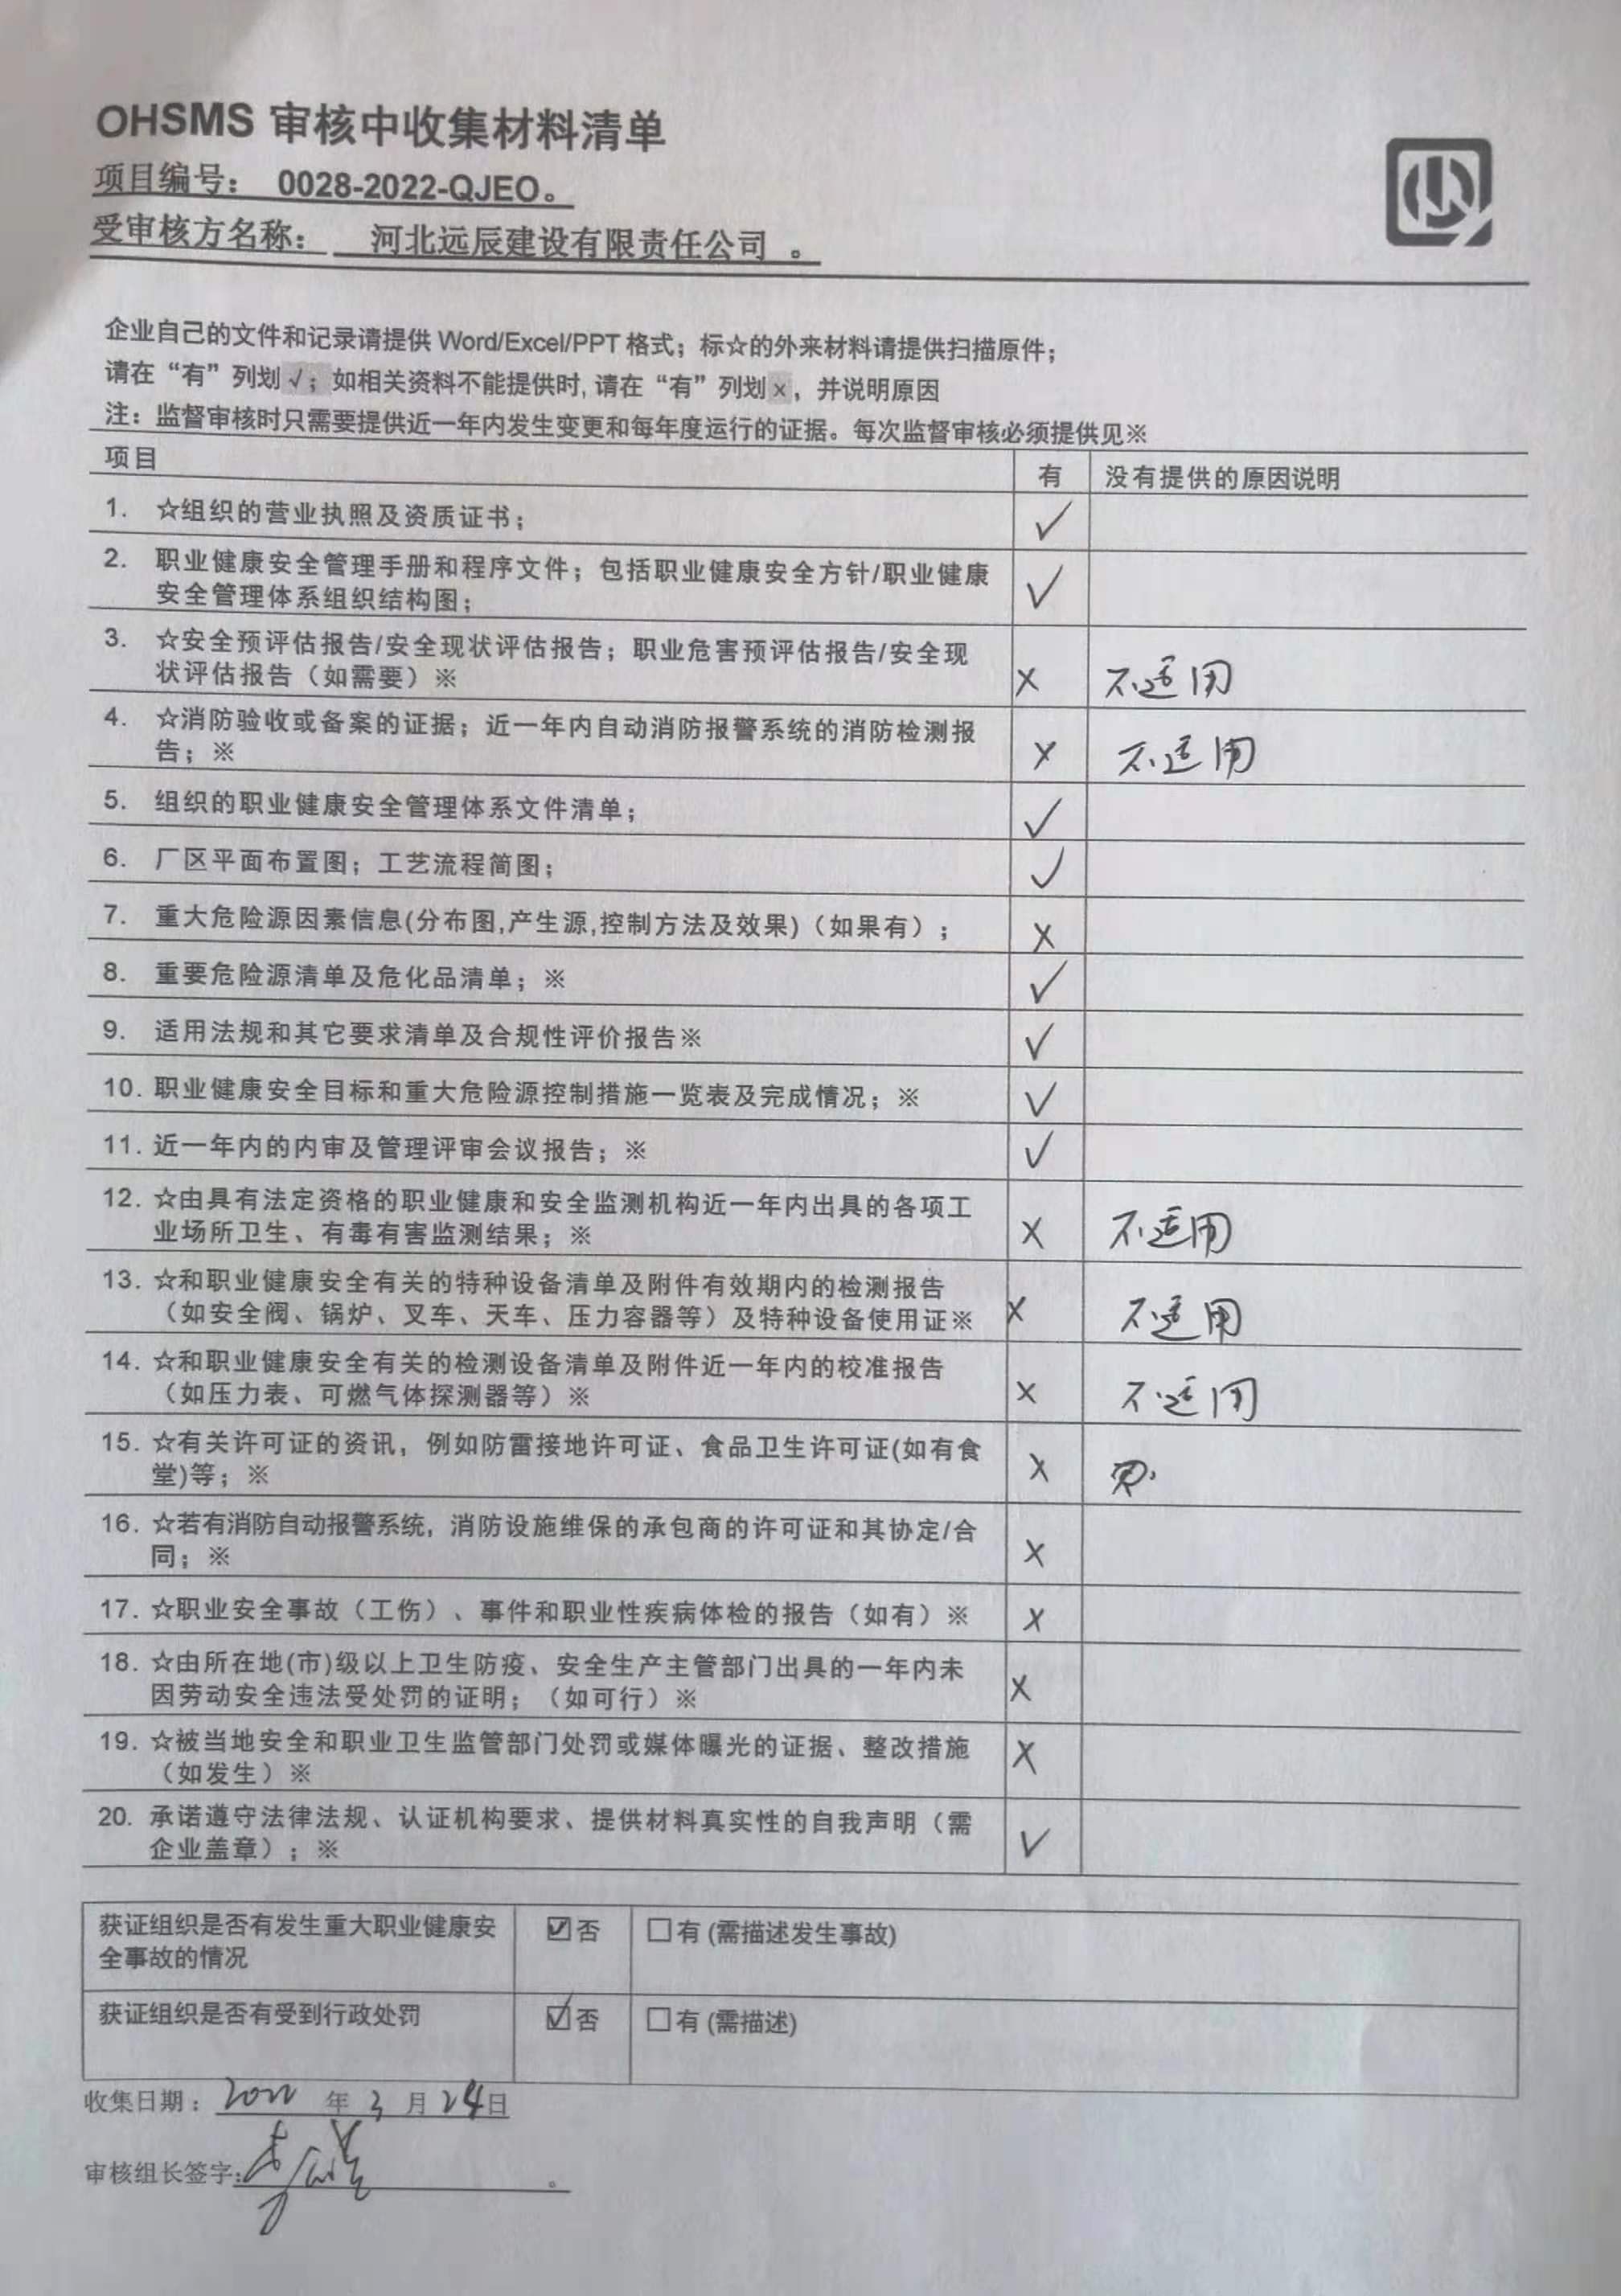 OHSMS 审核中收集材料清单
项目编号： 0028-2022-QJEO。
受审核方名称： 河北远辰建设有限责任公司 。
企业自己的文件和记录请提供 Word/Excel/PPT 格式；标☆的外来材料请提供扫描原件；
请在“有”列划√；如相关资料不能提供时, 请在“有”列划×，并说明原因
注：监督审核时只需要提供近一年内发生变更和每年度运行的证据。每次监督审核必须提供见※
项目 有 没有提供的原因说明
1. ☆组织的营业执照及资质证书； ✓
2. 职业健康安全管理手册和程序文件；包括职业健康安全方针/职业健康
安全管理体系组织结构图； ✓
3. ☆安全预评估报告/安全现状评估报告；职业危害预评估报告/安全现
状评估报告（如需要）※ × 不适用
4. ☆消防验收或备案的证据；近一年内自动消防报警系统的消防检测报
告；※ × 不适用
5. 组织的职业健康安全管理体系文件清单； ✓
6. 厂区平面布置图；工艺流程简图； ✓
7. 重大危险源因素信息(分布图,产生源,控制方法及效果)（如果有）； ×
8. 重要危险源清单及危化品清单；※ ✓
9. 适用法规和其它要求清单及合规性评价报告※ ✓
10. 职业健康安全目标和重大危险源控制措施一览表及完成情况；※ ✓
11. 近一年内的内审及管理评审会议报告；※ ✓
12. ☆由具有法定资格的职业健康和安全监测机构近一年内出具的各项工
业场所卫生、有毒有害监测结果；※ × 不适用
13. ☆和职业健康安全有关的特种设备清单及附件有效期内的检测报告
（如安全阀、锅炉、叉车、天车、压力容器等）及特种设备使用证※ × 不适用
14. ☆和职业健康安全有关的检测设备清单及附件近一年内的校准报告
（如压力表、可燃气体探测器等）※ × 不适用
15. ☆有关许可证的资讯，例如防雷接地许可证、食品卫生许可证(如有食
堂)等；※ ×
16. ☆若有消防自动报警系统，消防设施维保的承包商的许可证和其协定/合
同；※ ×
17. ☆职业安全事故（工伤）、事件和职业性疾病体检的报告（如有）※ ×
18. ☆由所在地(市)级以上卫生防疫、安全生产主管部门出具的一年内未
因劳动安全违法受处罚的证明；（如可行）※ ×
19. ☆被当地安全和职业卫生监管部门处罚或媒体曝光的证据、整改措施
（如发生）※ ×
20. 承诺遵守法律法规、认证机构要求、提供材料真实性的自我声明（需
企业盖章）；※ ✓
获证组织是否有发生重大职业健康安 ☑否 □有 (需描述发生事故)
全事故的情况
获证组织是否有受到行政处罚 ☑否 □有 (需描述)
收集日期：2022 年 3 月 24日
审核组长签字: 。